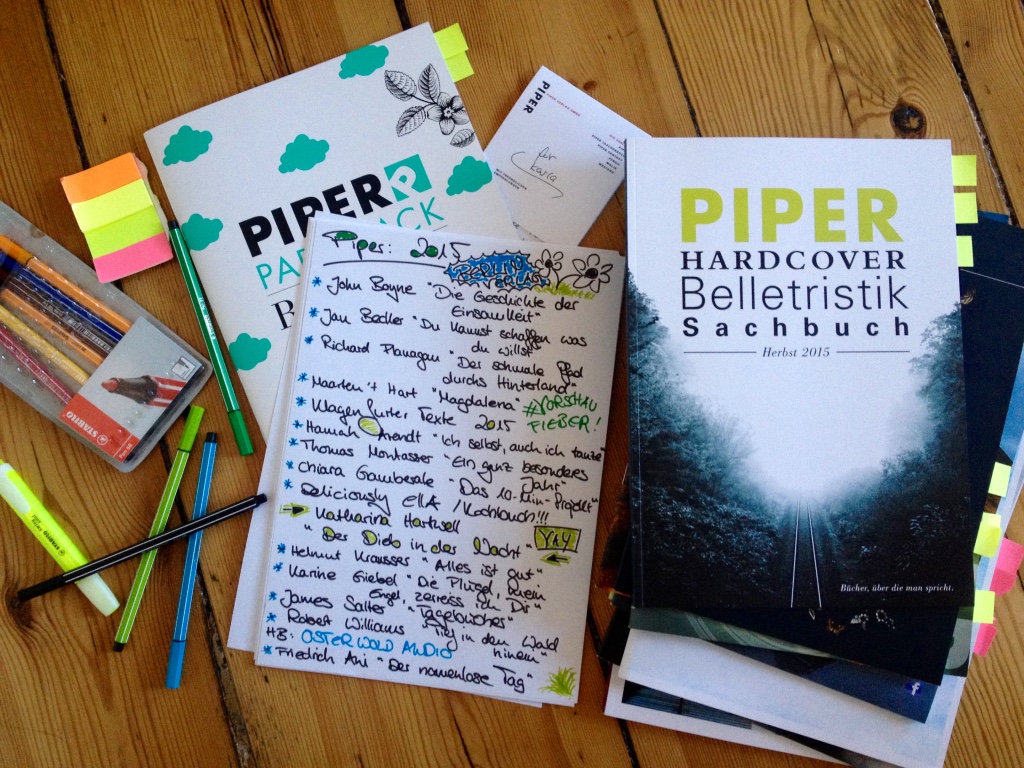 PIPER
PA
CK
B
PIPER
für
Karla
Piper: 2015
BERLIN VERLAG
* John Boyne "Die Geschichte der
Einsamkeit"
* Jan Becker "Du kannst schaffen was
du willst"
* Richard Flanagan "Der schmale Pfad
durchs Hinterland"
* Maarten 't Hart "Magdalena"
#VORSCHAU
FIEBER!
* Klagenfurter Texte 2015
* Hannah Arendt "Ich selbst, auch ich tanze"
* Thomas Montasser "Ein ganz besonderes
Jahr"
* Chiara Gamberale "Das 10-Min-Projekt"
* Deliciously Ella /Kochbuch!!!
Katharina Hartwell
"Der Dieb in der Nacht"
YAY
* Helmut Krausser "Alles ist gut"
* Karine Giebel "Die Flügel, mein
Engel, zerreiss ich Dir"
* James Salter "Tagebuches"
* Robert Williams "Tief in den Wald
hinein"
HB: OSTERWOLD AUDIO
* Friedrich Ani "Der namenlose Tag"
PIPER
HARDCOVER
Belletristik
Sachbuch
Herbst 2015
Bücher, über die man spricht.
STABILO